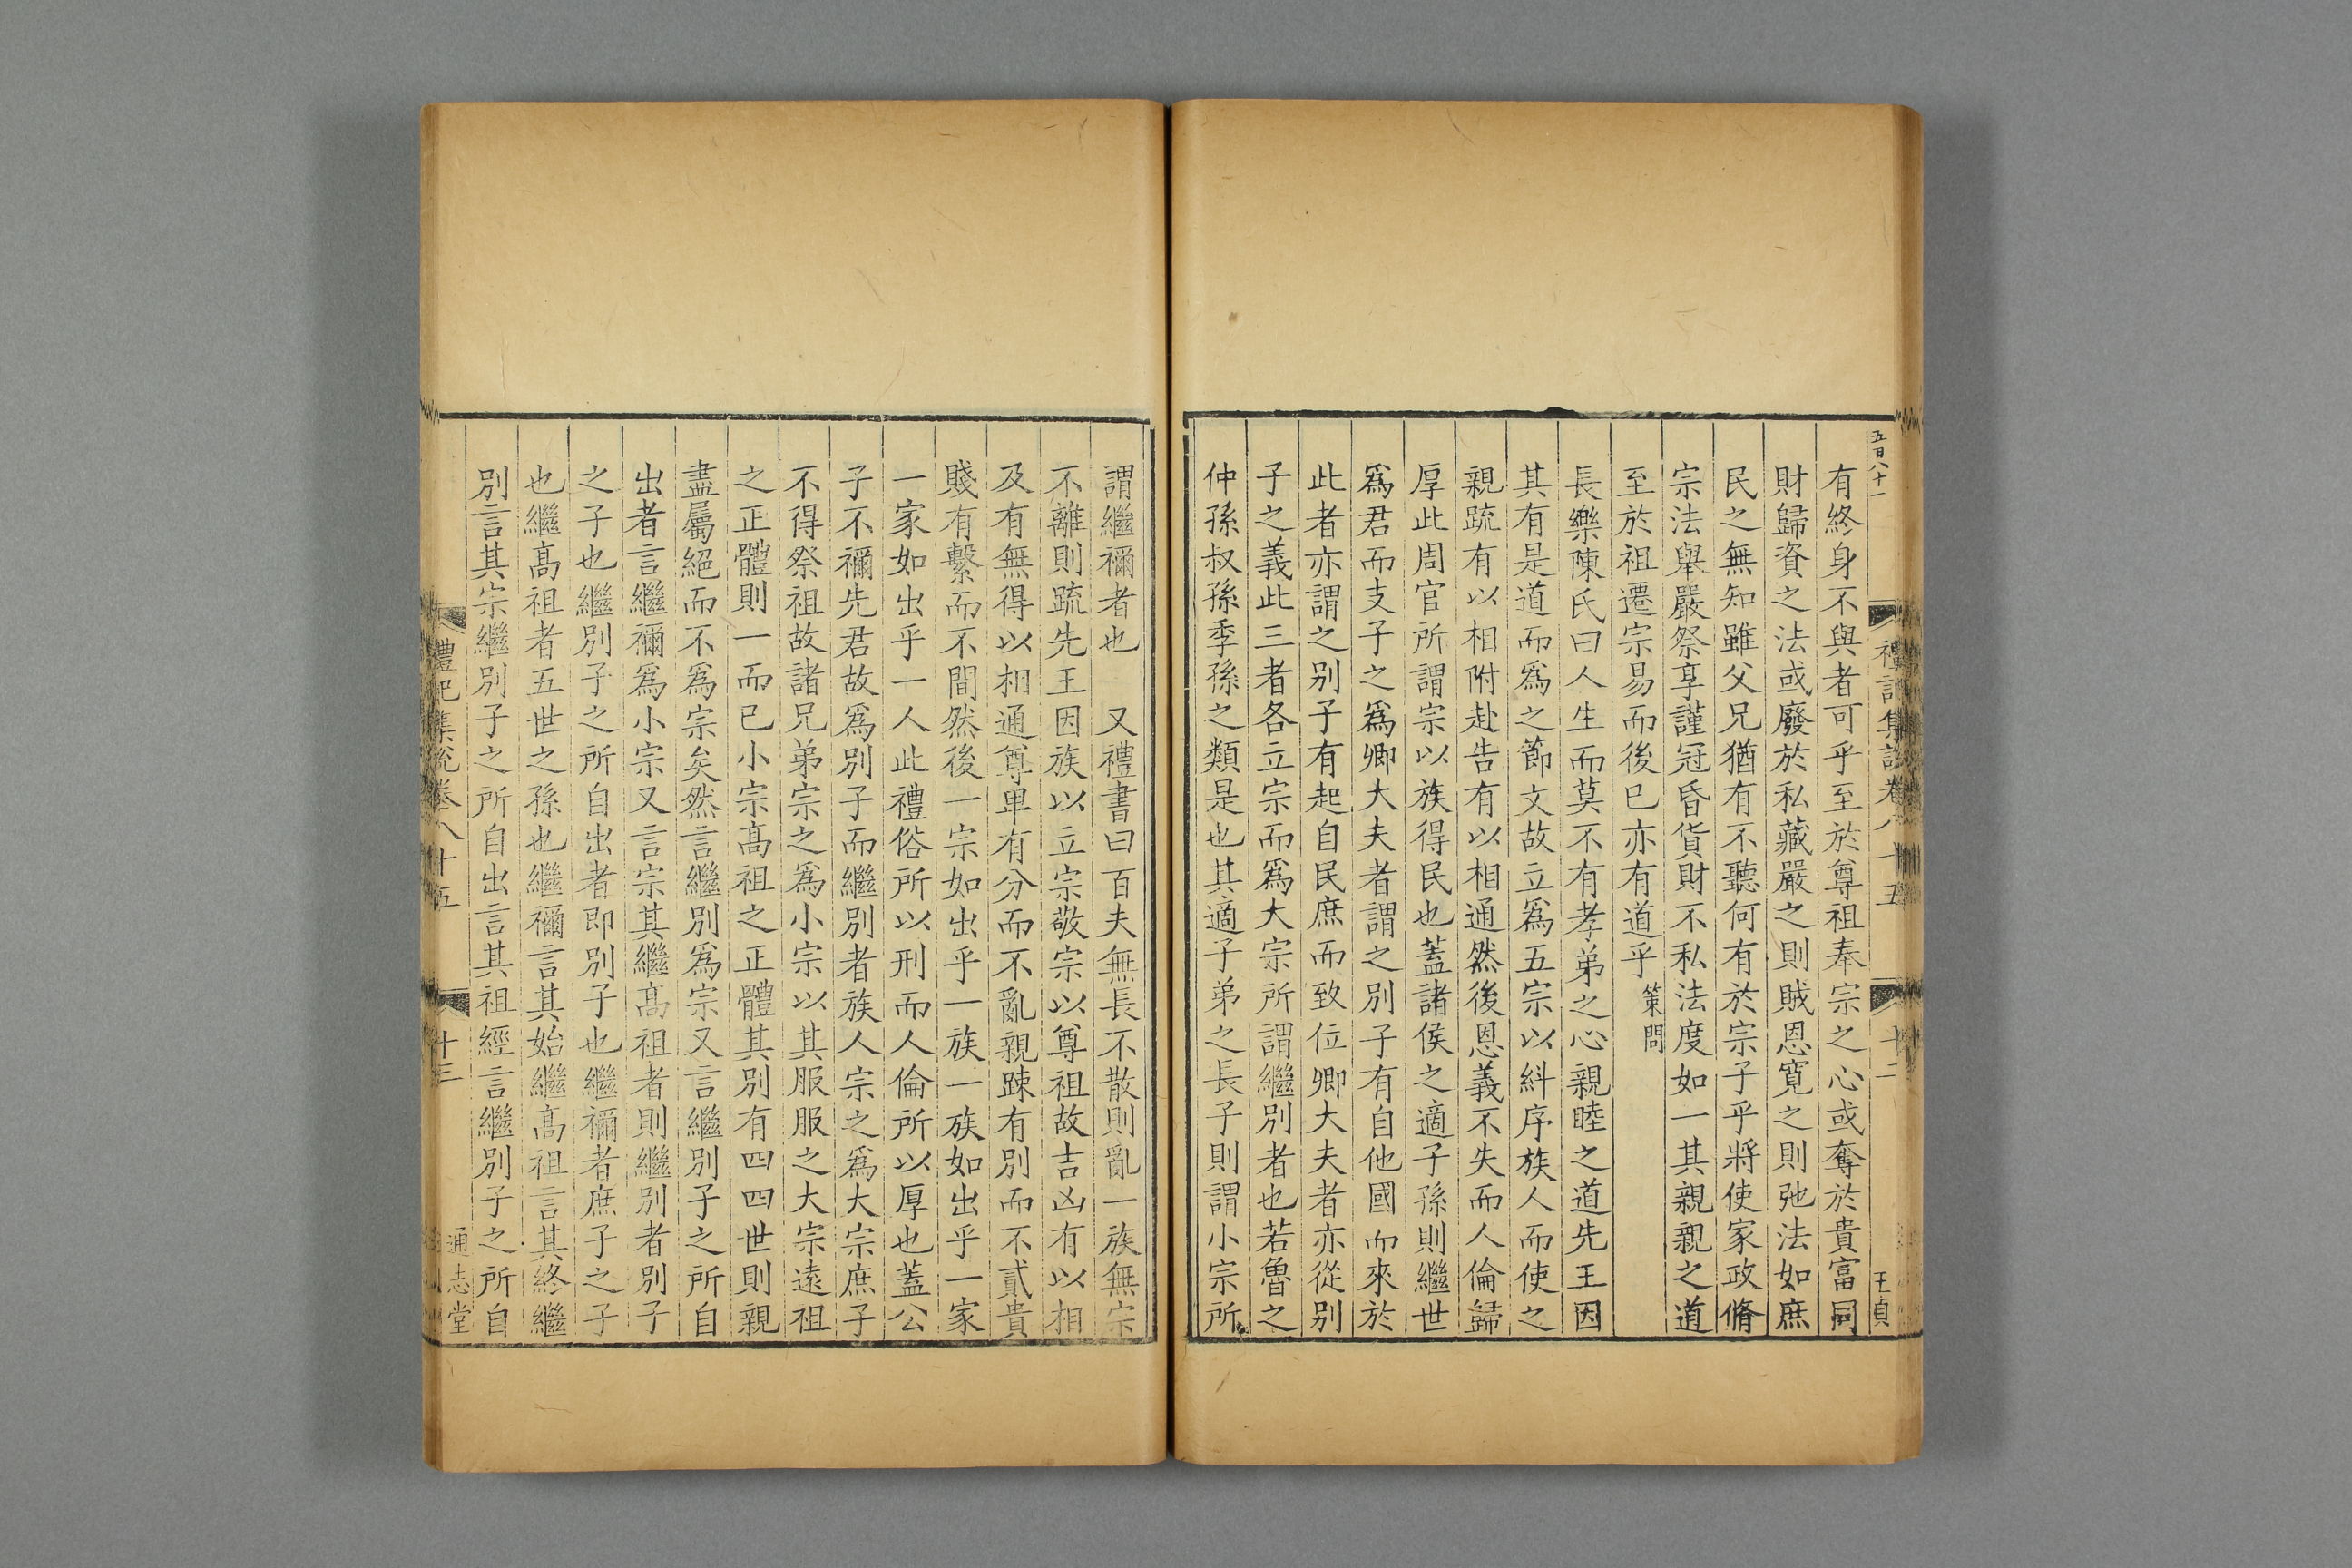 五百八十一
禮記集說卷八十五
十二
王貞
有終身不與者可乎至於尊祖奉宗之心或奪於貴富同
財歸資之法或廢於私藏嚴之則賊恩寬之則弛法如庶
民之無知雖父兄猶有不聽何有於宗子乎將使家政脩
宗法舉嚴祭享謹冠昏貨財不私法度如一其親親之道
至於祖遷宗易而後已亦有道乎 策問
長樂陳氏曰人生而莫不有孝弟之心親睦之道先王因
其有是道而爲之節文故立爲五宗以糾序族人而使之
親疏有以相附赴告有以相通然後恩義不失而人倫歸
厚此周官所謂宗以族得民也蓋諸侯之適子孫則繼世
爲君而支子之爲卿大夫者謂之別子有自他國而來於
此者亦謂之別子有起自民庶而致位卿大夫者亦從別
子之義此三者各立宗而爲大宗所謂繼別者也若魯之
仲孫叔孫季孫之類是也其適子弟之長子則謂小宗所
謂繼禰者也 又禮書曰百夫無長不散則亂一族無宗
不離則疏先王因族以立宗敬宗以尊祖故吉凶有以相
及有無得以相通尊卑有分而不亂親踈有別而不貳貴
賤有繫而不間然後一宗如出乎一族一族如出乎一家
一家如出乎一人此禮俗所以刑而人倫所以厚也蓋公
子不禰先君故爲別子而繼別者族人宗之爲大宗庶子
不得祭祖故諸兄弟宗之爲小宗以其服服之大宗遠祖
之正體則一而已小宗高祖之正體其別有四四世則親
盡屬絕而不爲宗矣然言繼別爲宗又言繼別子之所自
出者言繼禰爲小宗又言宗其繼高祖者則繼別者別子
之子也繼別子之所自出者即別子也繼禰者庶子之子
也繼高祖者五世之孫也繼禰言其始繼高祖言其終繼
別言其宗繼別子之所自出言其祖經言繼別子之所自
禮記集說卷八十五
十三
通志堂